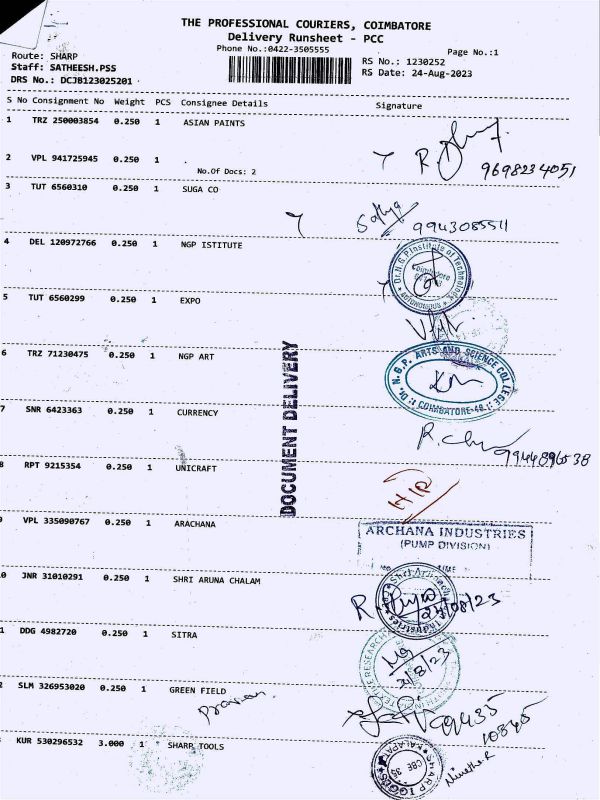 THE PROFESSIONAL COURIERS, COIMBATORE
Delivery Runsheet - PCC
Phone No.:0422-3505555
Page No.:1
Route: SHARP
Staff: SATHEESH.PSS
DRS No.: DCJB123025201
RS No.: 1230252
RS Date: 24-Aug-2023
S No Consignment No Weight PCS Consignee Details Signature
1 TRZ 250003854 0.250 1 ASIAN PAINTS
2 VPL 941725945 0.250 1 .
No.Of Docs: 2
9698234051
3 TUT 6560310 0.250 1 SUGA CO
Sathya 9943085511
4 DEL 120972766 0.250 1 NGP ISTITUTE
Dr.N.G.P.Institute of Technology
Coimbatore
AUTONOMOUS
5 TUT 6560299 0.250 1 EXPO
6 TRZ 71230475 0.250 1 NGP ART
Dr. N. G. P. ARTS AND SCIENCE COLLEGE
COIMBATORE-48
DOCUMENT DELIVERY
7 SNR 6423363 0.250 1 CURRENCY
8 RPT 9215354 0.250 1 UNICRAFT
9 VPL 335090767 0.250 1 ARACHANA
ARCHANA INDUSTRIES
(PUMP DIVISION)
0 JNR 31010291 0.250 1 SHRI ARUNA CHALAM
24/08/23
1 DDG 4982720 0.250 1 SITRA
2 SLM 326953020 0.250 1 GREEN FIELD
KUR 530296532 3.000 1 SHARP TOOLS
SHARP TOOLS
KALAPATTI
CBE 35